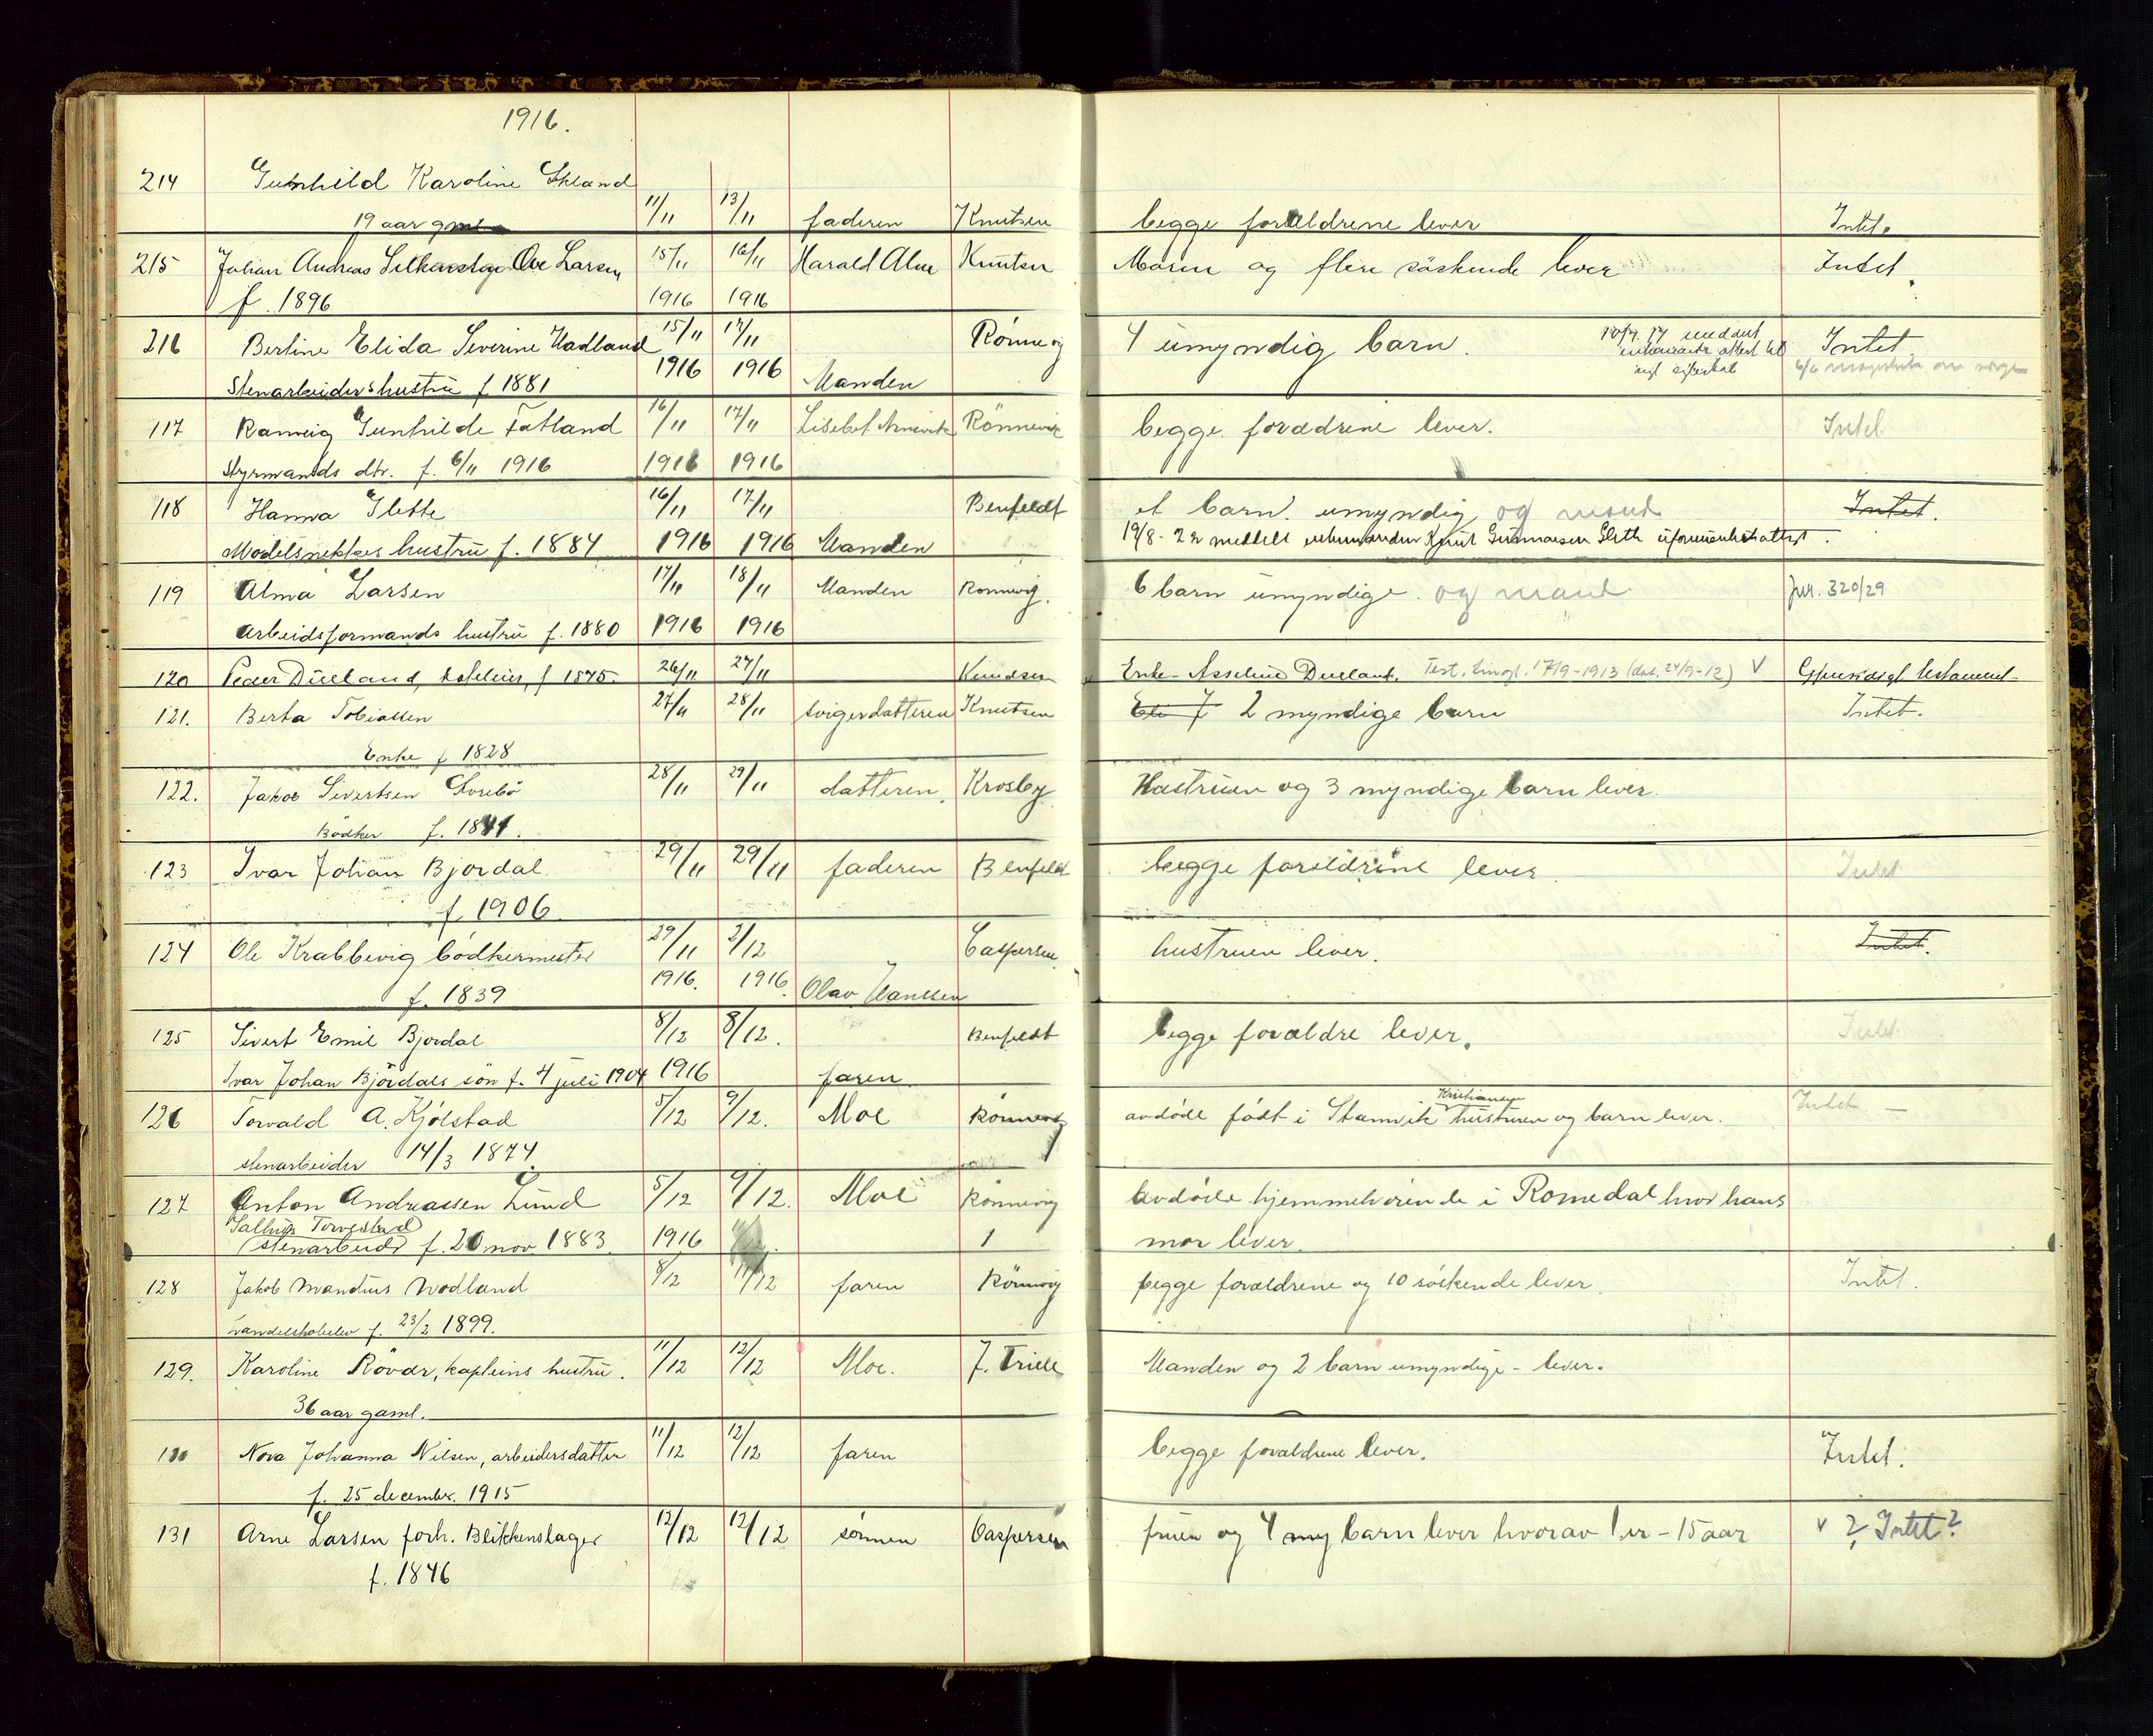 1916.
214 Gunhild Karoline
19 aar gml 11/11 13/11 faderen Knutsen begge forældrene lever Intet.
215 Julian Andreas Ove Larsen 15/11 16/11 Harald Alne Knutsen Moren og flere söskende lever Intet.
f. 1896 1916 1916
216 Bertine Elida Severine Hadland 15/11 17/11 Rönnevig 4 umyndig barn. Intet
Stenarbeiders hustru f 1881 1916 1916 Manden
117 Ranveig Gunhilde Fatland 16/11 17/11 Rönnevig begge forældrene lever. Intet
Styrmands dtr. f. 6/11 1916 1916 1916
118 Hanna Slette 16/11 17/11 Benfeldt et barn umyndig og mand Intet.
Modelsnekkers hustru f. 1884 1916 1916 Manden 19/8-22 meddelt enkemanden Knut Gunnarsen Slette uformuenhetsattest.
119 Alma Larsen 17/11 18/11 Manden Ronnevig. 6 barn umyndige og mand Jnr. 320/29
Arbeidsformands hustru f. 1880 1916 1916
120 Peder Dueland, f 1875 26/11 27/11 Knudsen Enke Asseline Dueland. Test. tingl. 17/9-1913 (dat. 24/9-12) V Gjensidigt testament
121. Berta Tobiassen 27/11 28/11 svigerdatteren Knutsen 2 myndige barn Intet.
Enke f 1828
122. Jakob Sivertsen 28/11 29/11 datteren. Krosby Hustruen og 3 myndige barn lever.
Bödker f. 1841.
123 Ivar Johan Bjordal 29/11 29/11 faderen Benfeldt begge forældrene lever Intet
f. 1906
124 Ole Krabbevig bödkermester 29/11 2/12 Caspersen hustruen lever. Intet.
f. 1839 1916. 1916. Olav Hanssen
125 Sivert Emil Bjordal 8/12 8/12. Benfeldt begge forældre lever. Intet
Ivar Johan Björdals sön f. 4 juli 1904 1916 faren
Kristiansen
126 Torvald A. Kjölstad 5/12 9/12. Moe Rönnevig avdöde födt i Stamvik hustruen og barn lever. Intet —
stenarbeider 14/3 1874.
127 Anton Andreassen Lund 5/12 9/12. Moe Rönnevig avdöde hjemmehörende i Romedal hvor hans
Torvestad
stenarbeider f. 20 nov 1883. 1916 mor lever.
128 Jakob Mandius Modland 8/12 11/12 faren Rönnevig begge forældrene og 10 söskende lever. Intet.
handelskolelev f. 23/2 1899.
129. Karoline Rövær, kapteins hustru. 11/12 12/12 Moe. J. Trieu Manden og 2 barn umyndige - lever.
36 aar gaml.
130 Nora Johanna Nilsen, arbeidersdatter 11/12 12/12 faren begge forældrene lever. Intet.
f. 25 decembr. 1915
131 Arne Larsen forh. Blikkenslager 12/12 12/12 sönnen Caspersen fruen og 4 my barn lever hvorav 1 er - 15 aar v ? Intet?
f. 1846